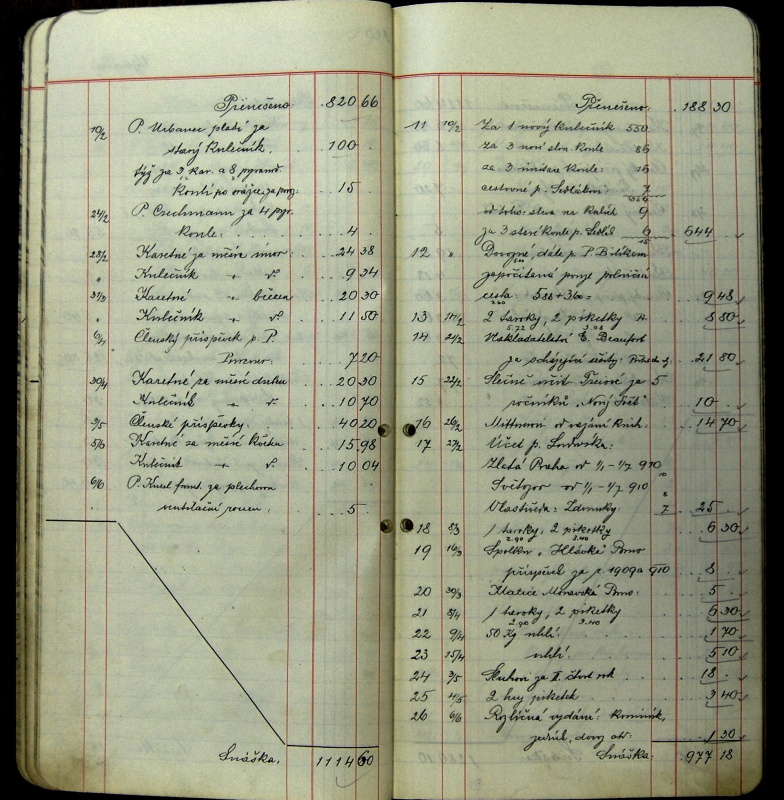 Přenešeno 820 66
10/2 P. Urbanec platí za
starý kulečník. 100
týž za 3 kar. a 8 pyramid.
15
24/2 P. Czechmann za 4 pyr.
koule: 4
28/2 Karetné za měsíc únor: 24 38
" Kulečník " " 9 34
31/3 Karetné " březen 20 30
" Kulečník " " 11 50
6/4 Členský příspěvek p. P.
7 20
30/4 Karetné za měsíc duben 20 30
Kulečník " " 10 70
3/5 Členské příspěvky. 40 20
5/6 Karetné za měsíc květen 15 98
Kulečník " " 10 04
6/6 za plechovou
ventilační rouru, 5
Snáška. 1114 60
Přenešeno: 188 30
11 10/2 Za 1 nový kulečník 550
za 3 nové slon. koule 86
za 3 imitace koule: 16
cestovné p. Sedlákovi 7
od toho: sleva na kulích 9
za 3 staré koule p. Sedlák 6 644
12 " Dovozné, dále p. P. Bílkem
započítaná pouze poloviční
cesta 588 + 360 = 9 48
13 14/2 2 taroky, 2 piketky 8 80
5.72 3.08
14 21/2 Nakladatelství E. Beaufort
za scházející sešity: 21 80
15 22/2 Slečně za 5
ročníků "Nový Svět" 10
16 26/2 od vázání knih: 14 70
17 27/2 Účet p. Ludwika:
Zlatá Praha od 1/1 - 1/7 910 10
Světozor od 1/1 - 1/7 910 8
Vlastivěda: 7 25
18 8/3 1 taroky, 2 piketky 6 30
2.90 3.40
19 16/3 Spolku "Hlávka" Brno
příspěvek za r. 1909 a 910 8
20 30/3 Matice Moravská Brno: 5
21 8/4 1 taroky, 2 piketky 6 30
2.90 3.40
22 9/4 50 Kg uhlí: 1 70
23 15/4 uhlí. 5 10
24 3/5 Sluhovi za II. čtvrt rok 18
25 4/5 2 hry piketek 3 40
26 6/6 Rozličná vydání: kominík,
1 30
Snáška: 977 18